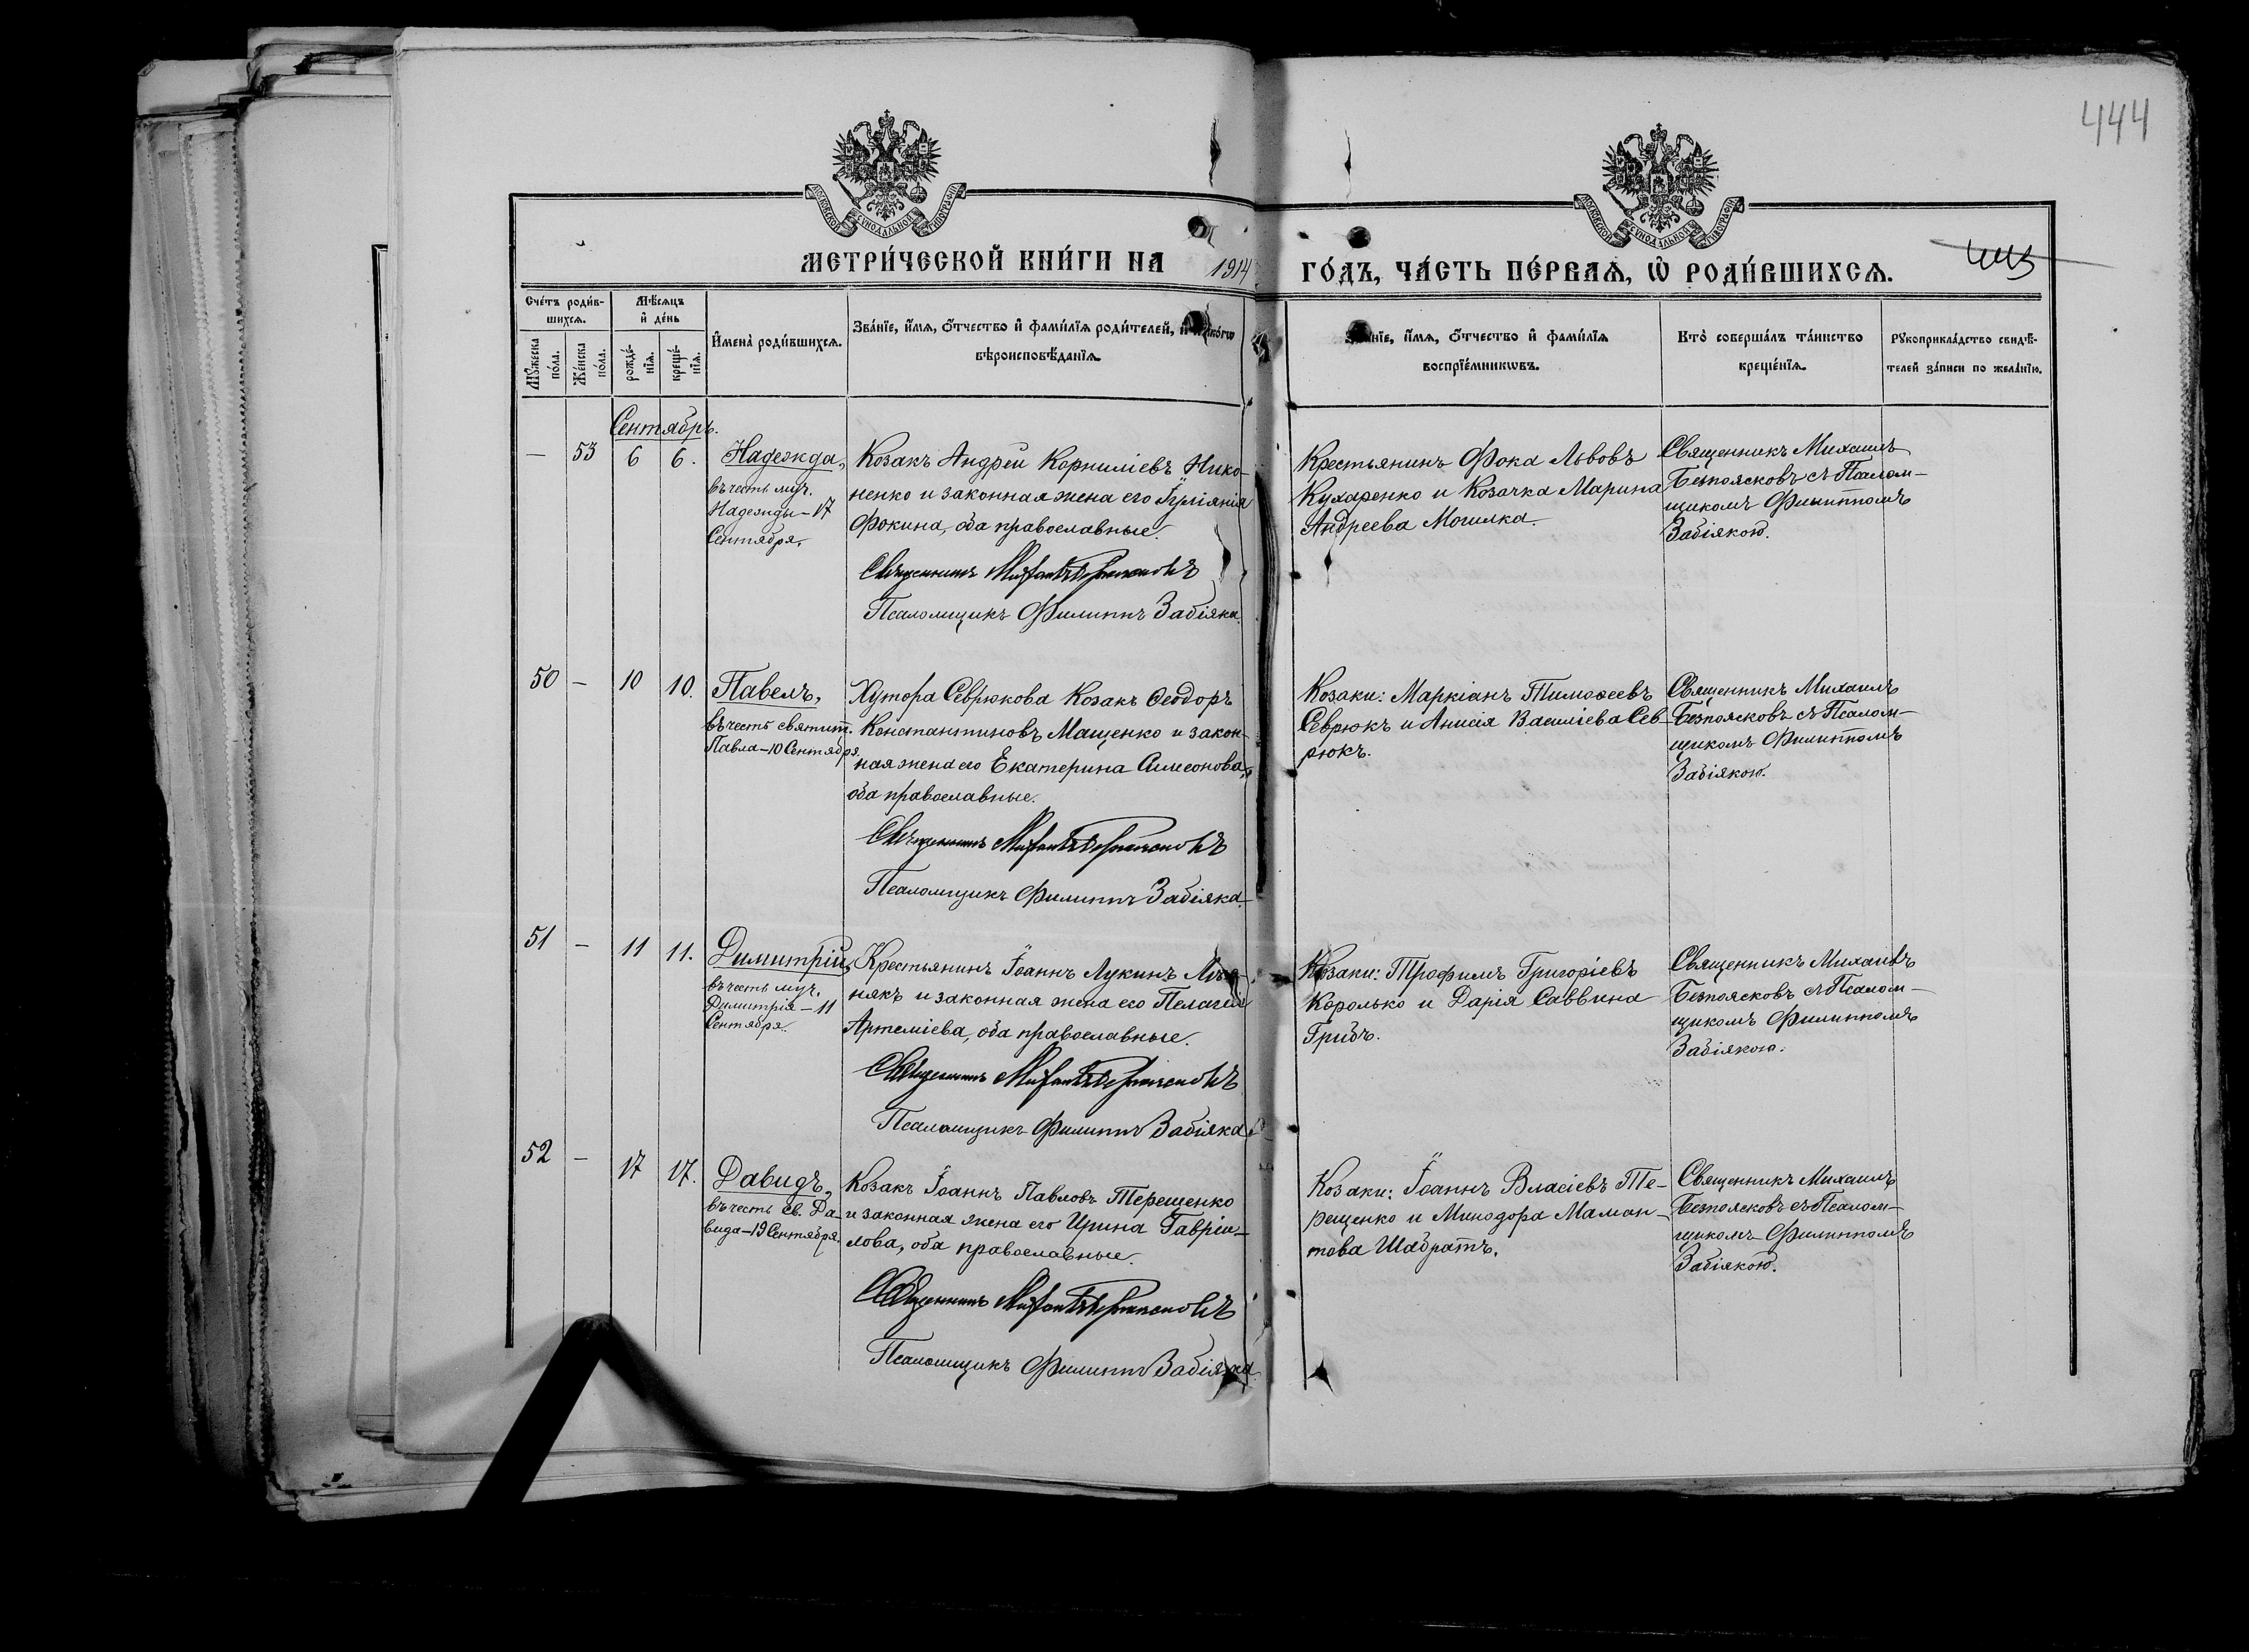 444
МОСКОВСКОЙ СѴНОДАЛЬНОЙ ТИПОГРАФІИ
МОСКОВСКОЙ СѴНОДАЛЬНОЙ ТИПОГРАФІИ
МЕТРИ́ЧЕСКОЙ КНИ́ГИ НА 1914 ГО́ДЪ, ЧА́СТЬ ПЕ́РВАѦ, Ѡ҆ РОДИ́ВШИХСѦ.
Сче́тъ роди́в-
шихсѧ.
Мѣ́сѧцъ
и҆ де́нь
Мꙋ́жеска
по́ла.
Же́нска
по́ла.
рожде́-
нїѧ.
креще́-
нїѧ.
И҆мена̀ роди́вшихсѧ.
Зва́нїе, и҆́мѧ, ѻ҆́тчество и҆ фами́лїѧ роди́телей, и҆ како́гѡ
вѣроисповѣ́данїѧ.
Зва́нїе, и҆́мѧ, ѻ҆́тчество и҆ фами́лїѧ
воспрїе́мникѡвъ.
Кто̀ соверша́лъ та́инство
креще́нїѧ.
Рꙋкоприкла́дство свидѣ́-
телей за́писи по жела́нїю.
Сентябрь.
— 53 6 6. Надежда,
въ честь муч.
Надежды – 17
Сентября.
Козакъ Андрей Корниліевъ Нико-
ненко и законная жена его Іуліанія
Фокина, оба православные.
Священникъ Михаилъ Безпоясковъ
Псаломщикъ Филиппъ Забіяка.
Крестьянинъ Фока Львовъ
Кухаренко и Козачка Марина
Андреева Могилка.
Священникъ Михаилъ
Безпоясковъ съ Псалом-
щикомъ Филиппомъ
Забіякою.
50 – 10 10. Павелъ,
въ честь святит.
Павла – 10 Сентября.
Хутора Севрюкова Козакъ Ѳеодоръ
Константиновъ Мащенко и закон-
ная жена его Екатерина Симеонова,
оба православные.
Священникъ Михаилъ Безпоясковъ
Псаломщикъ Филиппъ Забіяка.
Козаки: Маркіанъ Тимоѳеевъ
Севрюкъ и Анисія Василіева Сев-
рюкъ.
Священникъ Михаилъ
Безпоясковъ съ Псалом-
щикомъ Филиппомъ
Забіякою.
51 – 11 11. Димитрій,
въ честь муч.
Димитрія – 11
Сентября.
Крестьянинъ Іоаннъ Лукинъ
някъ и законная жена его Пелагія
Артеміева, оба православные.
Священникъ Михаилъ Безпоясковъ
Псаломщикъ Филиппъ Забіяка.
Козаки: Трофимъ Григоріевъ
Королько и Дарія Саввина
Грибъ.
Священникъ Михаилъ
Безпоясковъ съ Псалом-
щикомъ Филиппомъ
Забіякою.
52 – 17 17. Давидъ,
въ честь св. Да-
вида – 19 Сентября.
Козакъ Іоаннъ Павловъ Терещенко
и законная жена его Ирина Гавріи-
лова, оба православные.
Священникъ Михаилъ Безпоясковъ
Псаломщикъ Филиппъ Забіяка.
Козаки: Іоаннъ Власіевъ Те-
рещенко и Минодора Маман-
това Шабратъ.
Священникъ Михаилъ
Безпоясковъ съ Псалом-
щикомъ Филиппомъ
Забіякою.